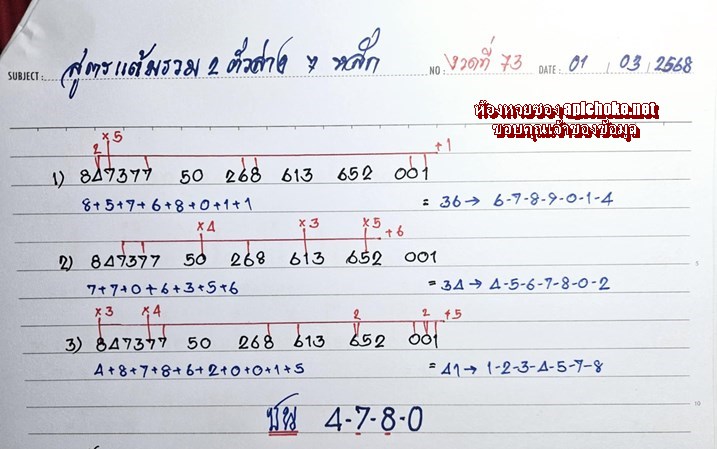 SUBJECT : สูตรแต้มรวม 2 ตัวล่าง 7 หลัก NO : งวดที่ 73 DATE : 01 / 03 / 2568
ห้องหวยซอง apichoke.net
ขอบคุณเจ้าของข้อมูล
x5
2 +1
1) 847377 50 268 613 652 001
8+5+7+6+8+0+1+1 = 36 → 6-7-8-9-0-1-4
x4 x3 x5 +6
2) 847377 50 268 613 652 001
7+7+0+6+3+5+6 = 34 → 4-5-6-7-8-0-2
x3 x4 2 2 +5
3) 847377 50 268 613 652 001
4+8+7+8+6+2+0+0+1+5 = 41 → 1-2-3-4-5-7-8
ชน 4-7-8-0
5
10